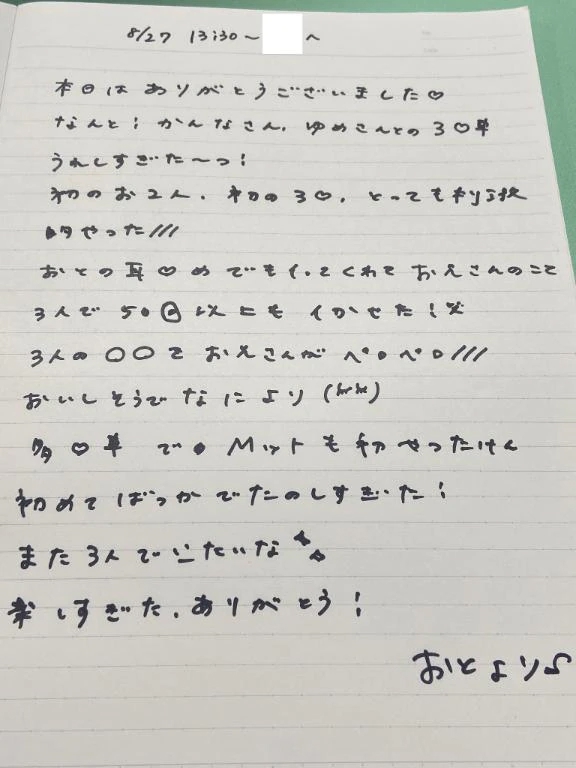 8/27 13:30～ へ
本日はありがとうございました♡
なんと！かんなさん、ゆめさんとの3♡単
うれしすぎた～っ！
初のお2人、初の3♡、とっても
やった///
おとの耳♡めでもイってくれて おえさんのこと
3人で 50 以上も イかせた！
3人の〇〇を おえさんが ペロペロ///
おいしそうでなにより
多♡単 で Mットも初やったけん
初めてばっかでたのしすぎた！
また3人でいたいな
楽しすぎた、ありがとう！
おとより♪